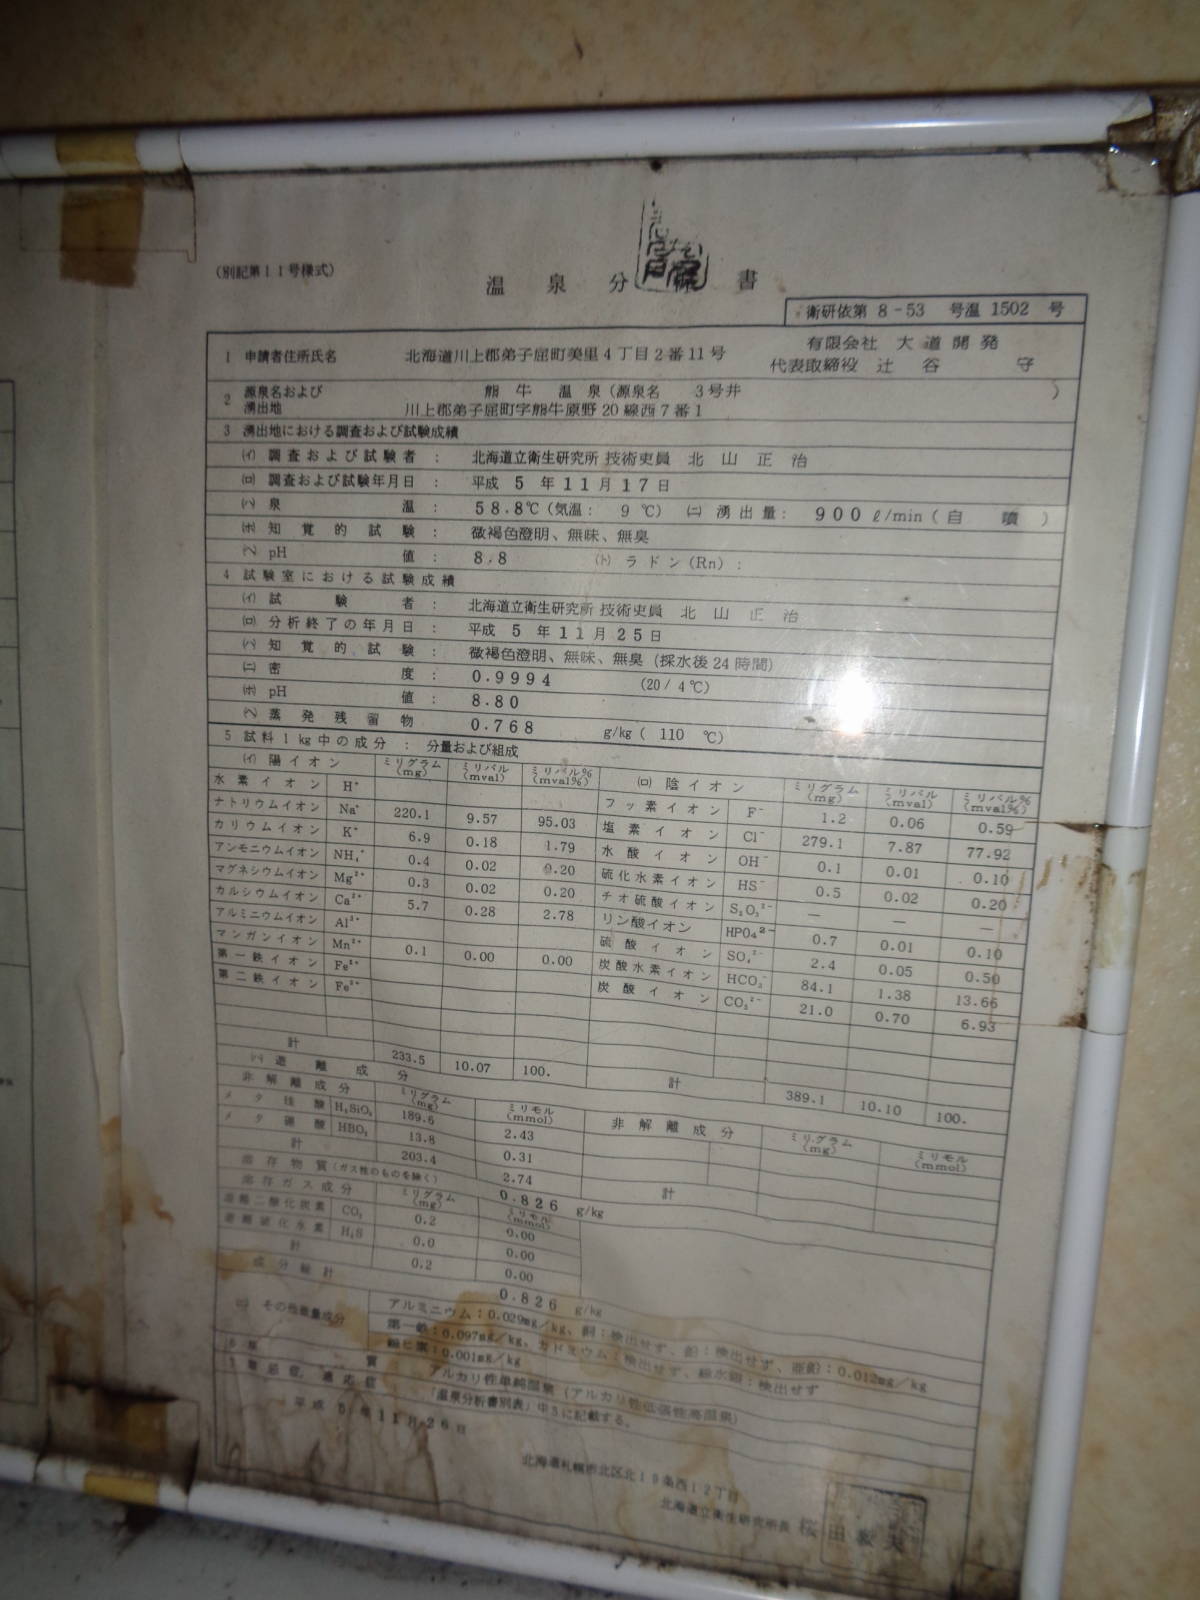 (別記第11号様式)
温泉分 書
衛研依第 8-53 号温 1502 号
1 申請者住所氏名 北海道川上郡弟子屈町美里4丁目2番11号 有限会社 大道開発
代表取締役 辻谷 守
2 源泉名および 熊牛 温泉(源泉名 3号井 )
湧出地 川上郡弟子屈町字熊牛原野20線西7番1
3 湧出地における調査および試験成績
(イ) 調査および試験者 : 北海道立衛生研究所 技術吏員 北山正治
(ロ) 調査および試験年月日 : 平成 5 年 11 月 17 日
(ハ) 泉温 : 58.8℃ (気温: 9 ℃) (ニ) 湧出量: 900 ℓ/min (自噴)
(ホ) 知覚的試験 : 微褐色澄明、無味、無臭
(ヘ) pH値 : 8.8 (ト) ラドン(Rn) :
4 試験室における試験成績
(イ) 試験者 : 北海道立衛生研究所 技術吏員 北山正治
(ロ) 分析終了の年月日 : 平成 5 年 11 月 25 日
(ハ) 知覚的試験 : 微褐色澄明、無味、無臭 (採水後24時間)
(ニ) 密度 : 0.9994 (20/4℃)
(ホ) pH値 : 8.80
(ヘ) 蒸発残留物 0.768 g/kg ( 110 ℃)
5 試料1kg中の成分 : 分量および組成
(イ) 陽イオン ミリグラム(mg) ミリバル(mval) ミリバル%(mval%) (ロ) 陰イオン ミリグラム(mg) ミリバル(mval) ミリバル%(mval%)
水素イオン H⁺ フッ素イオン F⁻ 1.2 0.06 0.59
ナトリウムイオン Na⁺ 220.1 9.57 95.03 塩素イオン Cl⁻ 279.1 7.87 77.92
カリウムイオン K⁺ 6.9 0.18 1.79 水酸イオン OH⁻ 0.1 0.01 0.10
アンモニウムイオン NH₄⁺ 0.4 0.02 0.20 硫化水素イオン HS⁻ 0.5 0.02 0.20
マグネシウムイオン Mg²⁺ 0.3 0.02 0.20 チオ硫酸イオン S₂O₃²⁻ — — —
カルシウムイオン Ca²⁺ 5.7 0.28 2.78 リン酸イオン HPO₄²⁻ 0.7 0.01 0.10
アルミニウムイオン Al³⁺ 硫酸イオン SO₄²⁻ 2.4 0.05 0.50
マンガンイオン Mn²⁺ 0.1 0.00 0.00 炭酸水素イオン HCO₃⁻ 84.1 1.38 13.66
第一鉄イオン Fe²⁺ 炭酸イオン CO₃²⁻ 21.0 0.70 6.93
第二鉄イオン Fe³⁺
計 233.5 10.07 100. 計 389.1 10.10 100.
(ハ) 遊離成分
非解離成分 ミリグラム(mg) ミリモル(mmol) 非解離成分 ミリグラム(mg) ミリモル(mmol)
メタ珪酸 H₂SiO₃ 189.6 2.43
メタ硼酸 HBO₂ 13.8 0.31
計 203.4 2.74 計
溶存物質(ガス性のものを除く) 0.826 g/kg
溶存ガス成分 ミリグラム(mg) ミリモル(mmol)
遊離二酸化炭素 CO₂ 0.2 0.00
遊離硫化水素 H₂S 0.0 0.00
計 0.2 0.00
成分総計 0.826 g/kg
(ニ) その他微量成分 アルミニウム:0.029mg/kg、銅:検出せず、鉛:検出せず、亜鉛:0.012mg/kg
第一鉄:0.097mg/kg、カドミウム:検出せず、総水銀:検出せず
総ヒ素:0.001mg/kg
6 泉質 アルカリ性単純温泉 (アルカリ性低張性高温泉)
7 禁忌症、適応症 「温泉分析書別表」中5に記載する。
平成 5 年 11 月 26 日
北海道札幌市北区北19条西12丁目
北海道立衛生研究所長 桜田